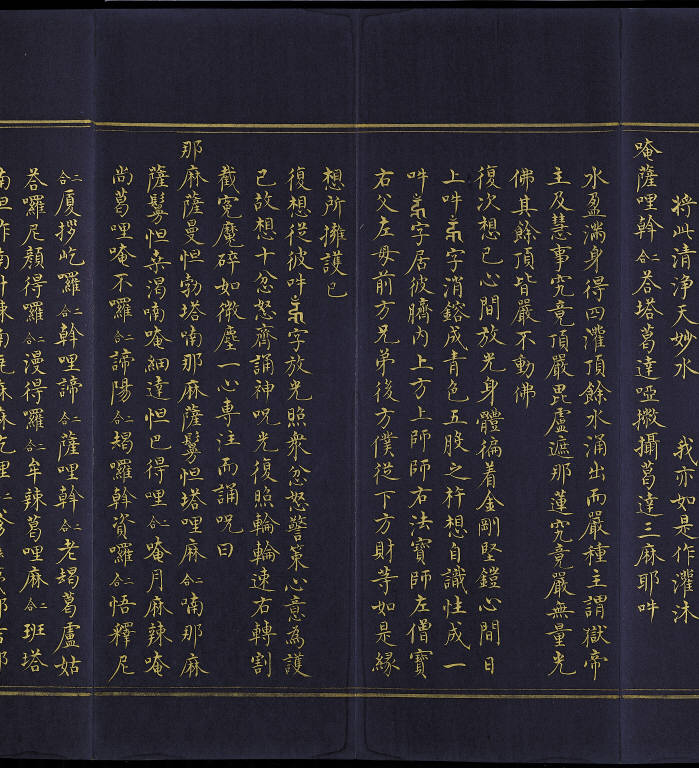 將此清淨天妙水　我亦如是作灌沐
唵薩哩斡二合荅塔葛達啞撇攝葛達三麻耶吽
水盈滿身得四灌頂餘水涌出而嚴種主謂獄帝
主及慧事究竟頂嚴毘盧遮那蓮究竟嚴無量光
佛其餘頂皆嚴不動佛
復次想己心間放光身體徧着金剛堅鎧心間日
上吽字消鎔成青色五股之杵想自識性成一
吽字居彼臍內上方上師師右法寶師左僧寶
右父左母前方兄弟後方僕從下方財等如是緣
想所擁護已
復想從彼吽字放光照衆忿怒警策心意為護
已故想十忿怒齊誦神呪光復照輪輪速右轉割
截寃魔碎如微塵一心專注而誦呪曰
那麻薩曼怛勃塔喃那麻薩鬘怛塔哩麻二合喃那麻
薩鬘怛桒渴喃唵細達怛巴得哩二合唵月麻辣唵
尚葛哩唵不囉二合諦陽二合竭囉斡資囉二合悟釋尼
二合厦拶屹囉二合斡哩諦二合薩哩斡二合老竭葛盧姑
荅囉尼顏得囉二合漫得囉二合牟辣葛哩麻二合班塔